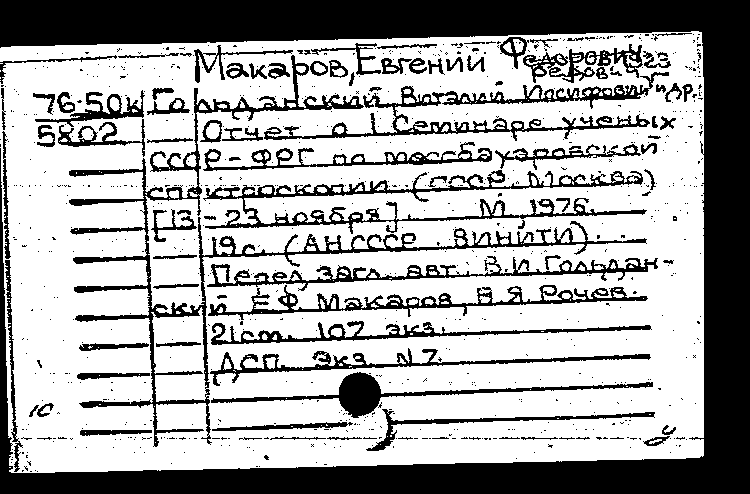 Макаров, Евгений Федорович
76-50к Гольданский, Виталий Иосифович и др.
5802 Отчет о I Семинаре ученых
СССР-ФРГ по мессбауэровской
спектроскопии (СССР. Москва)
[13-23 ноября]. М, 1976.
19с. (АН СССР. ВИНИТИ).
Перед загл. авт.: В.И. Гольдан-
ский, Е.Ф. Макаров, В.Я. Рочев.
21см. 107 экз.
ДСП. Экз. N 7.